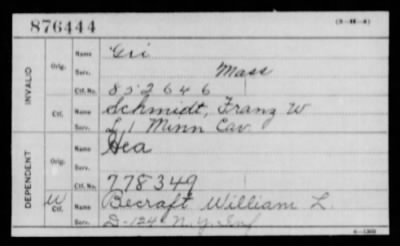 876444
(3-H-4)
INVALID
Orig.
Name Gri
Serv. Mass
Ctf. No. 852646
Ctf.
Name Schmidt, Franz W
Serv. L, 1 Minn Cav.
DEPENDENT
Orig.
Name Hea
Serv.
Ctf. No. 778349
W Ctf.
Name Becraft William L.
Serv. D-124 N.Y. Inf